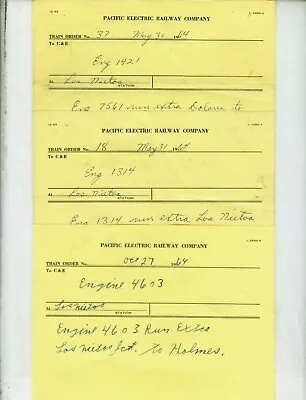 PACIFIC ELECTRIC RAILWAY COMPANY
TRAIN ORDER No. 37 May 30 1964
To C&E
Eng 1421
At Los Nietos
STATION
Eng 7561 run extra Dolores to
PACIFIC ELECTRIC RAILWAY COMPANY
TRAIN ORDER No. 18 May 31 1964
To C&E
Eng 1314
At Los Nietos
STATION
Eng 1314 run extra Los Nietos
PACIFIC ELECTRIC RAILWAY COMPANY
TRAIN ORDER No. Oct 27 1964
To C&E
Engine 4603
At Los Nietos
STATION
Engine 4603 Run Extra
Los Nietos Jct. to Holmes.